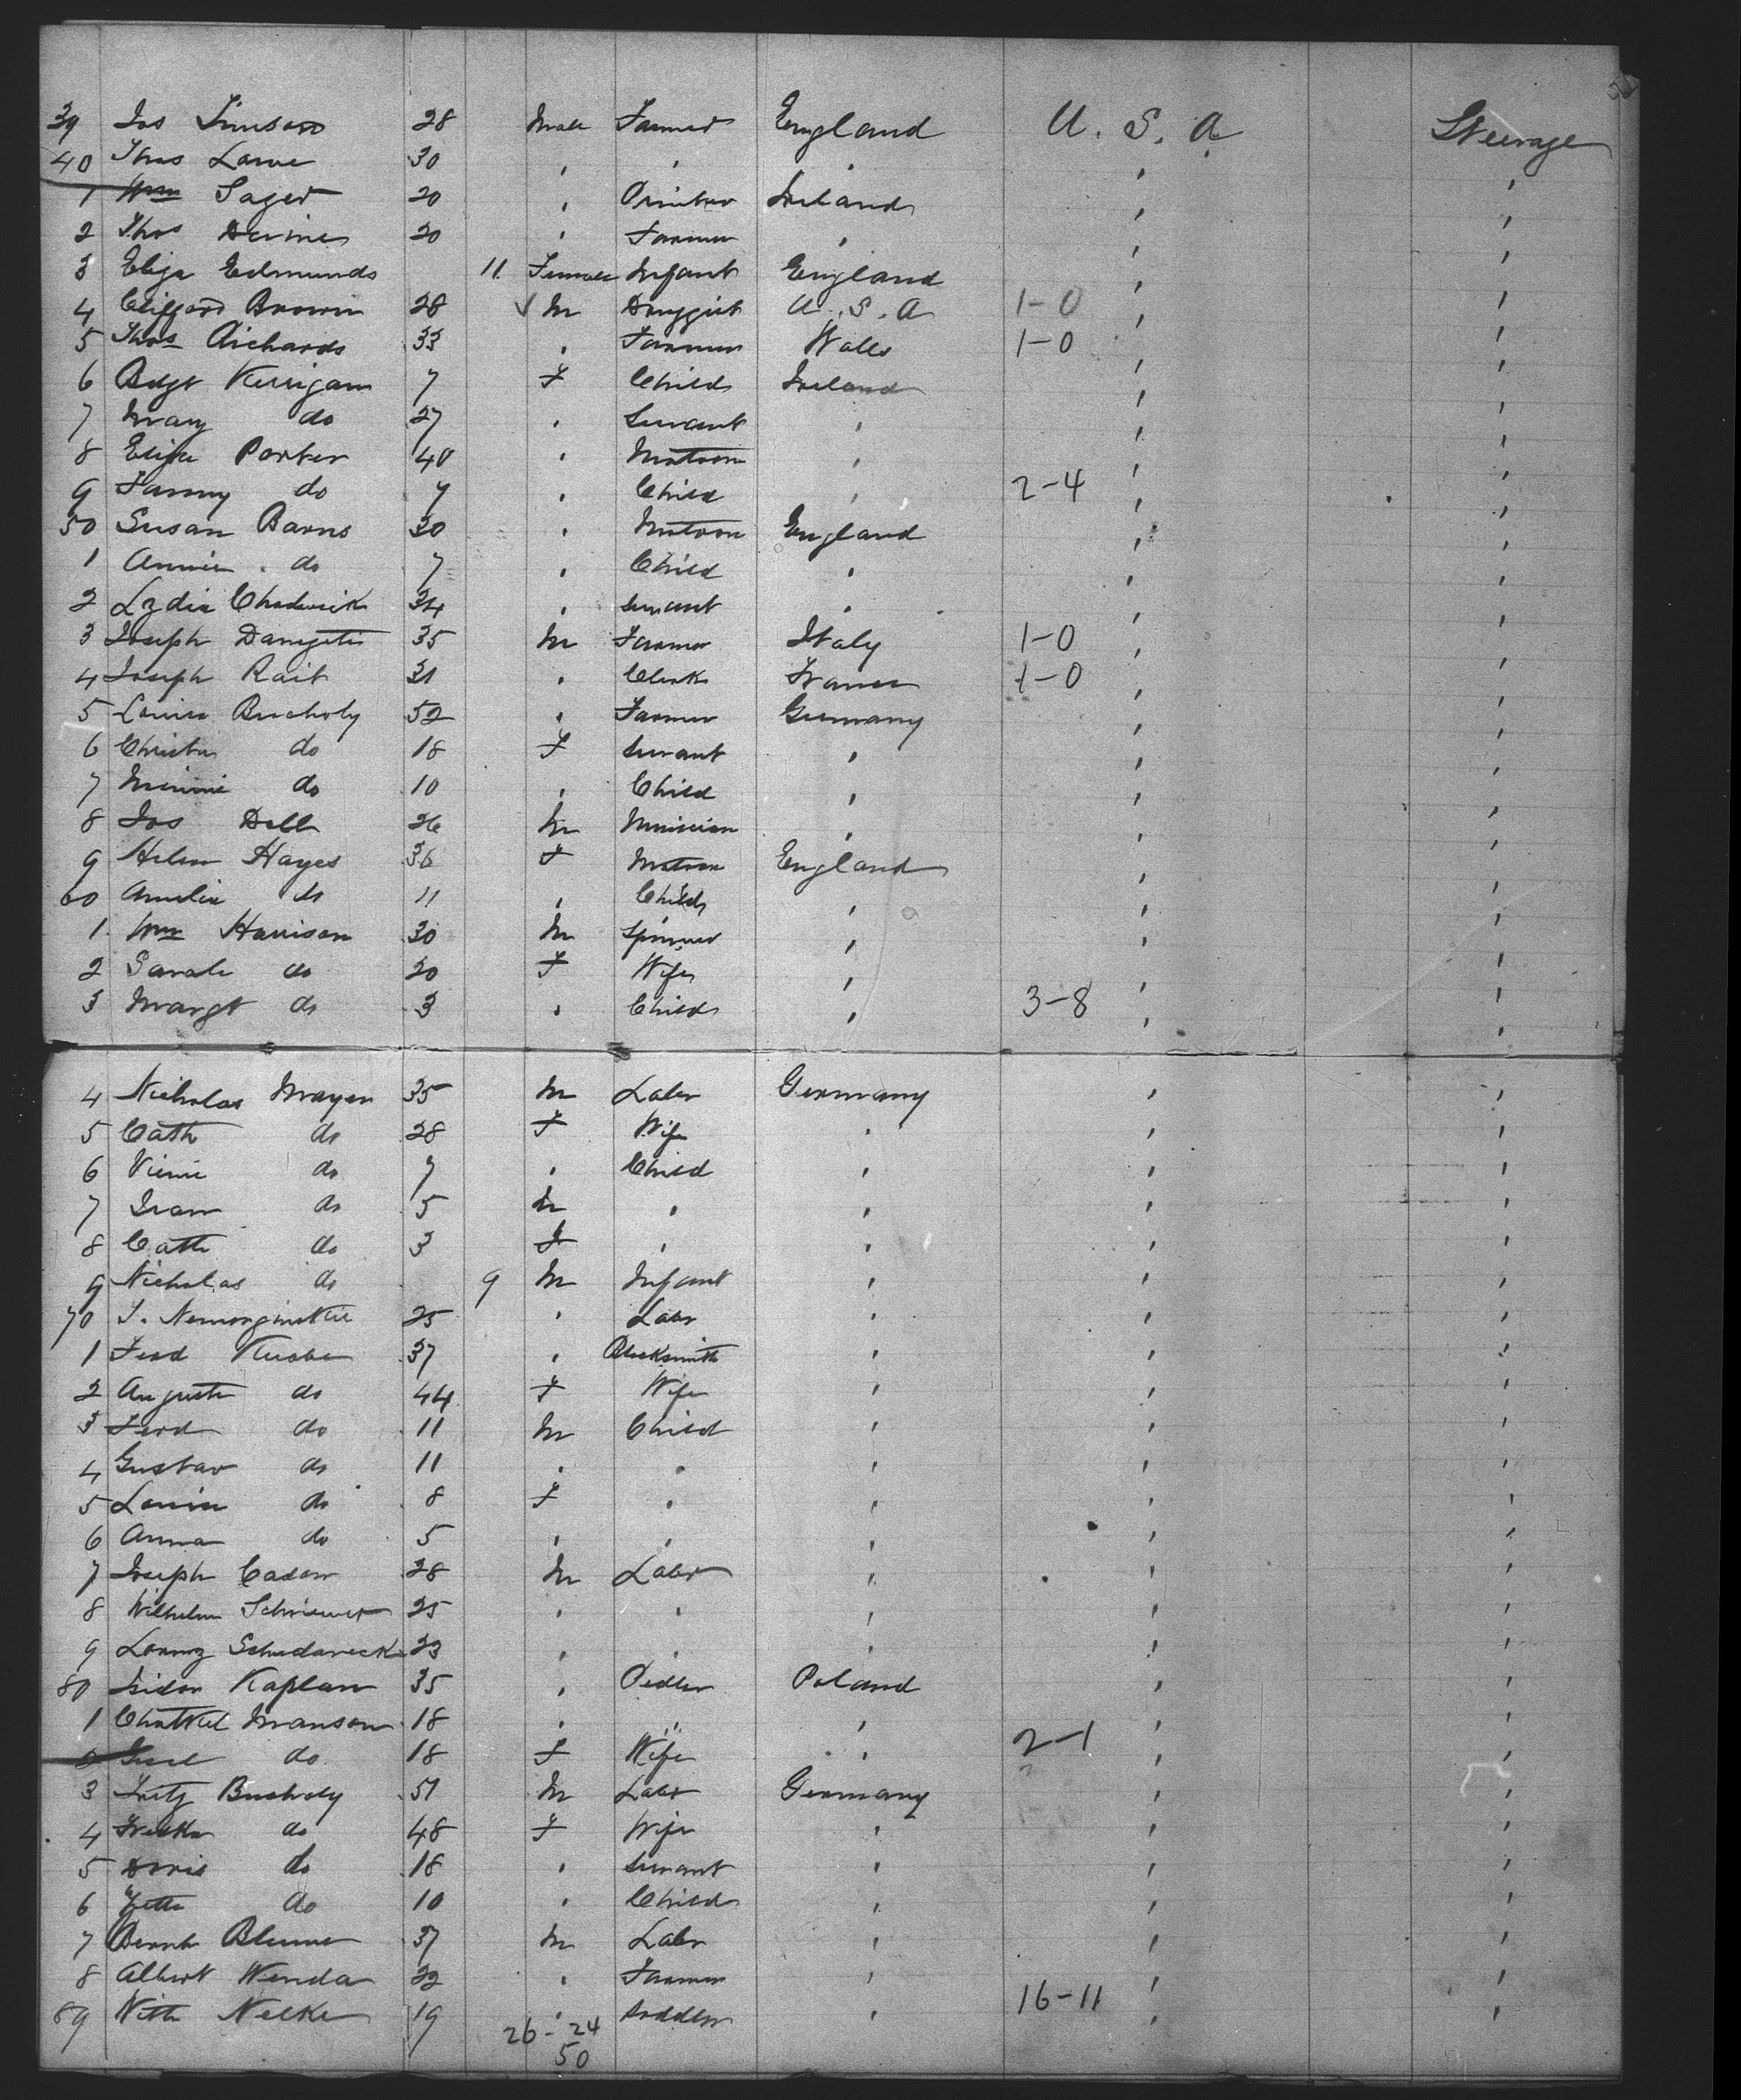 39 Jos Simson 28 Male Farmer England U. S. A Steerage
40 Thos Lowe 30 " " " " "
1 Wm Sager 20 " Printer Ireland " "
2 Thos Devine 20 " Farmer " " "
3 Eliza Edmunds 11 Female Infant England " "
4 Clifford Brown 28 M Druggist U. S. A 1-0 " "
5 Thos Richards 33 " Farmer Wales 1-0 " "
6 Bdgt Kerrigan 7 F Child Ireland " "
7 Mary do 27 " Servant " " "
8 Eliza Porter 40 " Matron " " "
9 Fanny do 7 " Child " 2-4 " "
50 Susan Barns 30 " Matron England " "
1 Annie do 7 " Child " " "
2 Lydia Chadwick 34 " Servant " " "
3 Joseph 35 M Farmer Italy 1-0 " "
4 Joseph Rait 31 " Clerk France 1-0 " "
5 Louis Bucholz 52 " Farmer Germany " "
6 do 18 F Servant " " "
7 Minnie do 10 " Child " " "
8 Jos Dell 26 M Musician " " "
9 Helen Hayes 36 F Matron England " "
60 Amelia do 11 " Child " " "
1 Wm Harrison 30 M Spinner " " "
2 Sarah do 20 F Wife " " "
3 Margt do 3 " Child " 3-8 " "
4 Nicholas Mayer 35 M Labr Germany " "
5 Cath do 28 F Wife " " "
6 do 7 " Child " " "
7 do 5 M " " " "
8 Cath do 3 F " " " "
9 Nicholas do 9 M Infant " " "
70 25 " Labr " " "
1 Ferd 37 " Blacksmith " " "
2 Auguste do 44 F Wife " " "
3 Ferd do 11 M Child " " "
4 Gustav do 11 " " " " "
5 Louisa do 8 F " " " "
6 Anna do 5 " " " " "
7 Joseph 28 M Labr " " "
8 Wilhelm 25 " " " " "
9 23 " " " " "
80 Isidor Kaplan 35 " Pedler Poland " "
1 Manson 18 " " " " "
2 do 18 F Wife " 2-1 " "
3 Fritz Bucholz 51 M Labr Germany " "
4 do 48 F Wife " " "
5 Doris do 18 " Servant " " "
6 do 10 " Child " " "
7 Blume 37 M Labr " " "
8 Albert Wenda 22 " Farmer " " "
89 19 " " 16-11 " "
26 - 24
50